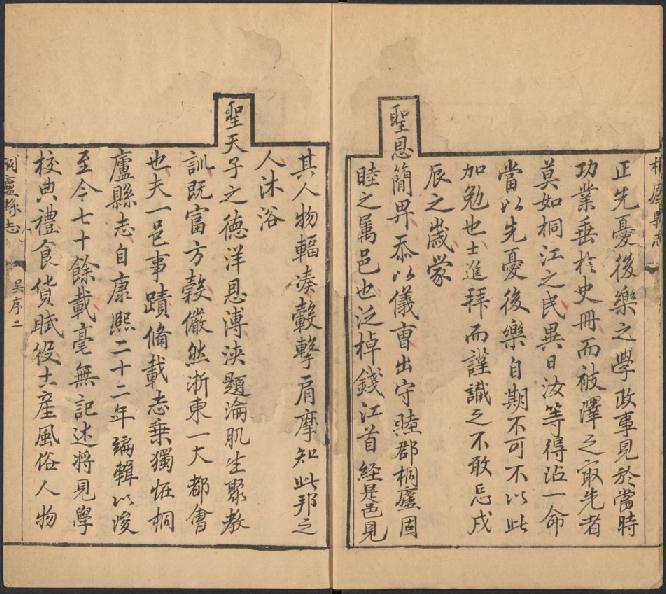 桐廬縣志
正先憂後樂之學政事見於當時
功業垂於史冊而被澤之最先者
莫如桐江之民異日汝等得沾一命
當以先憂後樂自期不可不以此
加勉也士進拜而謹識之不敢忘戌
辰之歲蒙
聖恩簡畀忝以儀曹出守睦郡桐廬固
睦之屬邑也泛棹錢江首經是邑見
其人物輻湊轂擊肩摩知此邦之
人沐浴
聖天子之德洋恩溥浹髓淪肌生聚教
訓既富方穀儼然浙東一大都會
也夫一邑事蹟備載志乘獨恠桐
廬縣志自康熙二十二年編輯以後
至今七十餘載毫無記述將見學
校典禮食貨賦役土產風俗人物
桐廬縣志 吳序二